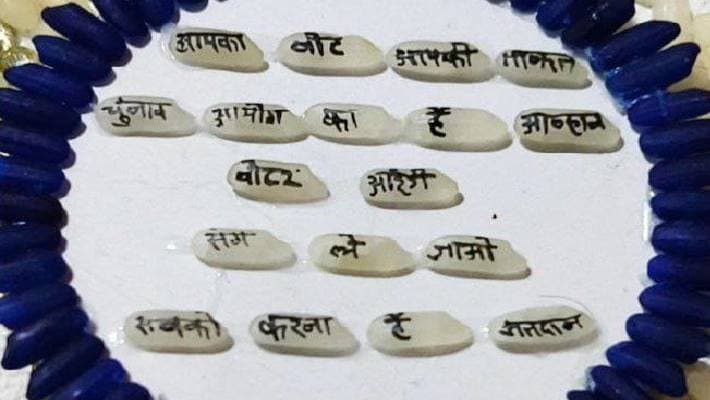 आपका वोट आपकी ताकत
चुनाव आयोग का हैं आव्हान
वोटर आईडी
संग ले जाओ
सबको करना हैं मतदान